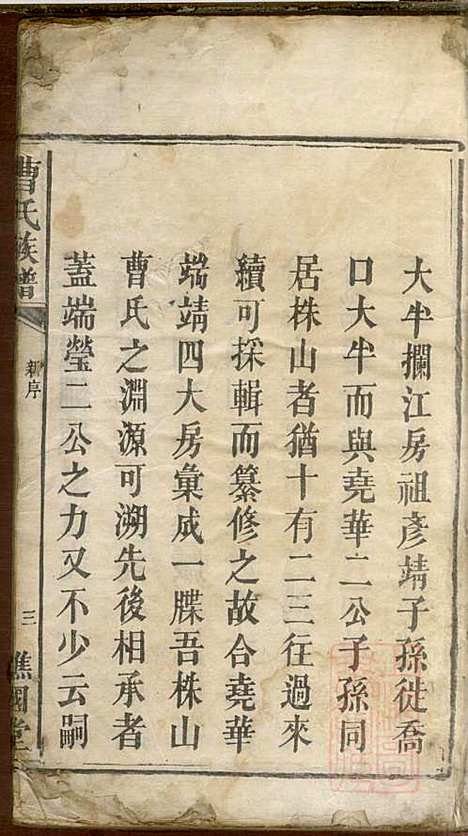 大半攔江房祖彥靖子孫徙喬
口大半而與堯華二公子孫同
居株山者猶十有二三往過來
續可採輯而纂修之故合堯華
端靖四大房彙成一牒吾株山
曹氏之淵源可溯先後相承者
蓋端瑩二公之力又不少云嗣
曹氏族譜
新序
三
譙國堂